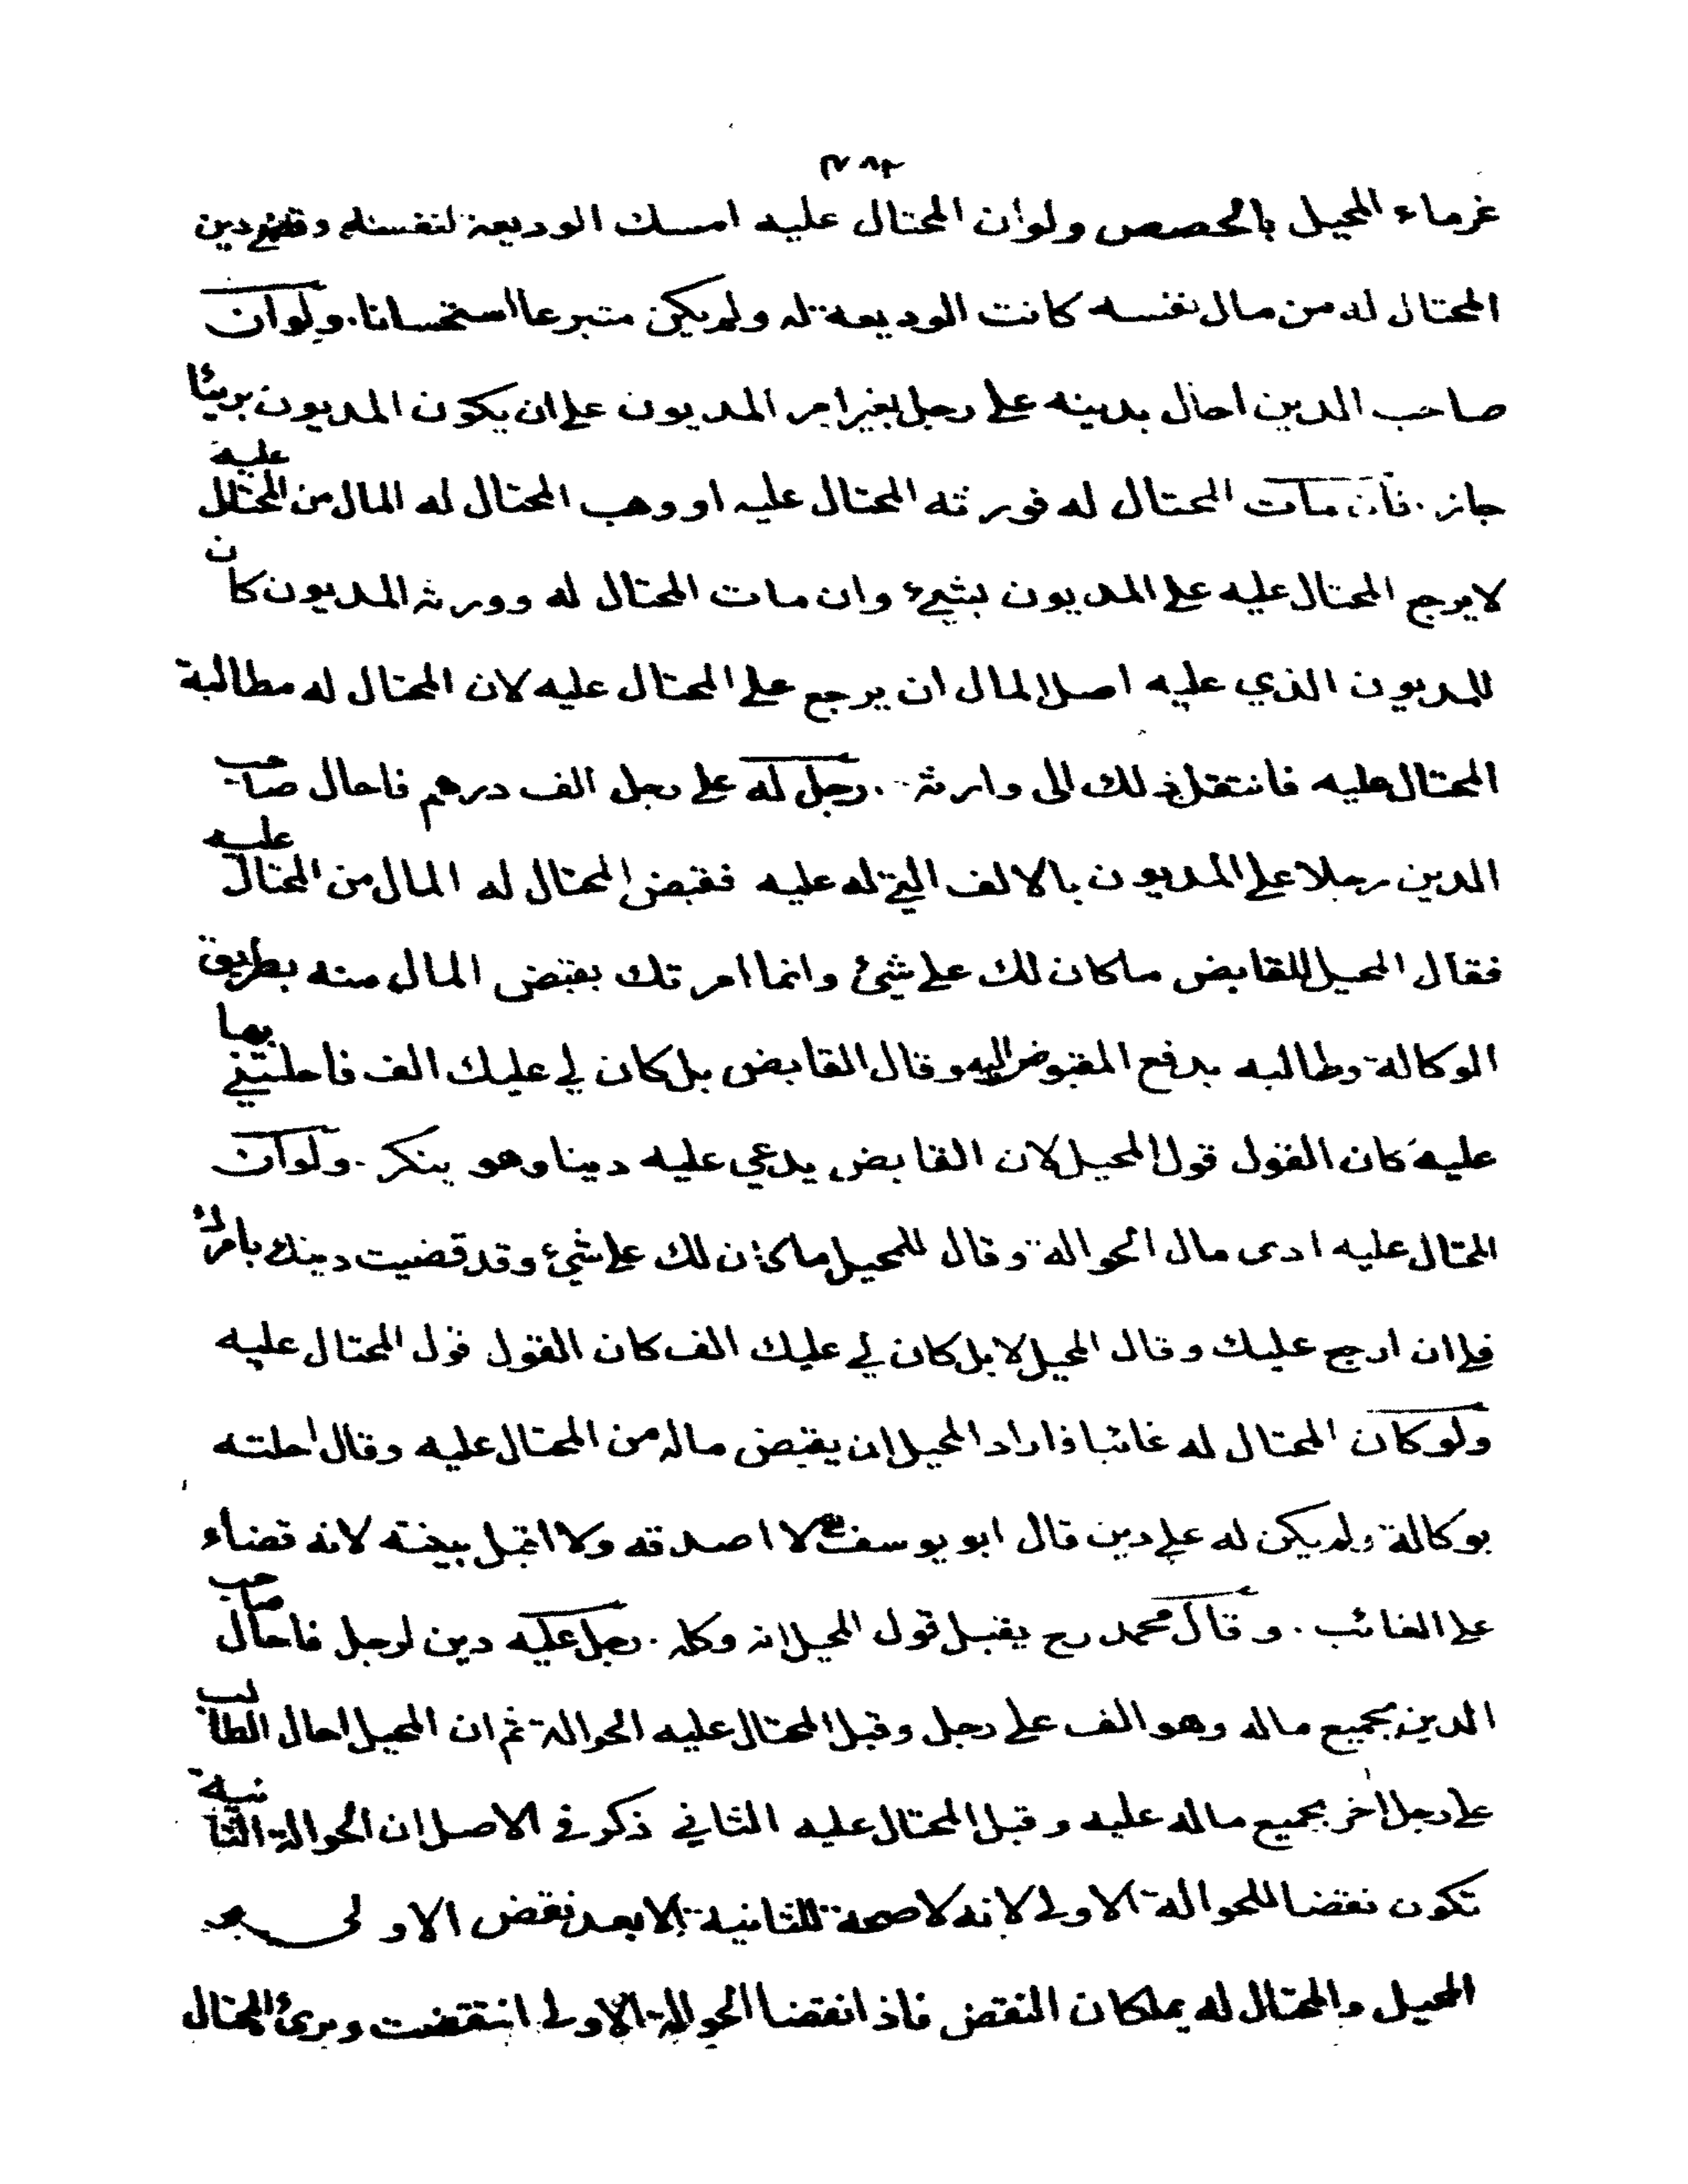 غرماء المحيل بالحصص ولوان المحتال عليه امسك الوديعة لنفسنه وقضى دين
المحتال له من مال نفسه كانت الوديعة له ولم يكن متبرعا استحسانا. ولوان
صاحب الدين احال بدينه على رجل بغير امر المديون على ان يكون المديون بريئا
جاز. فان مات المحتال له فورثه المحتال عليه او وهب المحتال له المال من المحتال عليه
لا يرجع المحتال عليه على المديون بشيء وان مات المحتال له وورثه المديون كان
للمديون الذي عليه اصل المال ان يرجع على المحتال عليه لان المحتال له مطالبة
المحتال عليه فانتقل ذلك الى وارثه. رجل له على رجل الف درهم فاحال صاحب
الدين رجلا على المديون بالالف التي له عليه فقبض المحتال له المال من المحتال عليه
فقال المحيل للقابض ما كان لك علي شيئ وانما امرتك بقبض المال منه بطريق
الوكالة وطالبه بدفع المقبوض اليه وقال القابض بل كان لي عليك الف فاحلتني بها
عليه كان القول قول المحيل لان القابض يدعي عليه دينا وهو ينكر. ولوان
المحتال عليه ادى مال الحوالة وقال للمحيل ما كان لك علي شيئ وقد قضيت دينك بامرك
فلي ان ارجع عليك وقال المحيل لا بل كان لي عليك الف كان القول قول المحتال عليه
ولو كان المحتال له غائبا فاراد المحيل ان يقبض ماله من المحتال عليه وقال احلته
بوكالة ولم يكن له علي دين قال ابو يوسف رح لا اصدقه ولا اقبل بينته لانه قضاء
على الغائب. وقال محمد رح يقبل قول المحيل انه وكله. رجل عليه دين لرجل فاحال صاحب
الدين بجميع ماله وهو الف على رجل وقبل المحتال عليه الحوالة ثم ان المحيل احال الطالب
على رجل اخر بجميع ماله عليه وقبل المحتال عليه الثاني ذكر في الاصل ان الحوالة الثانية
تكون نقضا للحوالة الاولى لانه لا صحة للثانية الا بعد نقض الاولى
المحيل والمحتال له يملكان النقض فاذا نقضا الحوالة الاولى انتقضت وبرئ المحتال